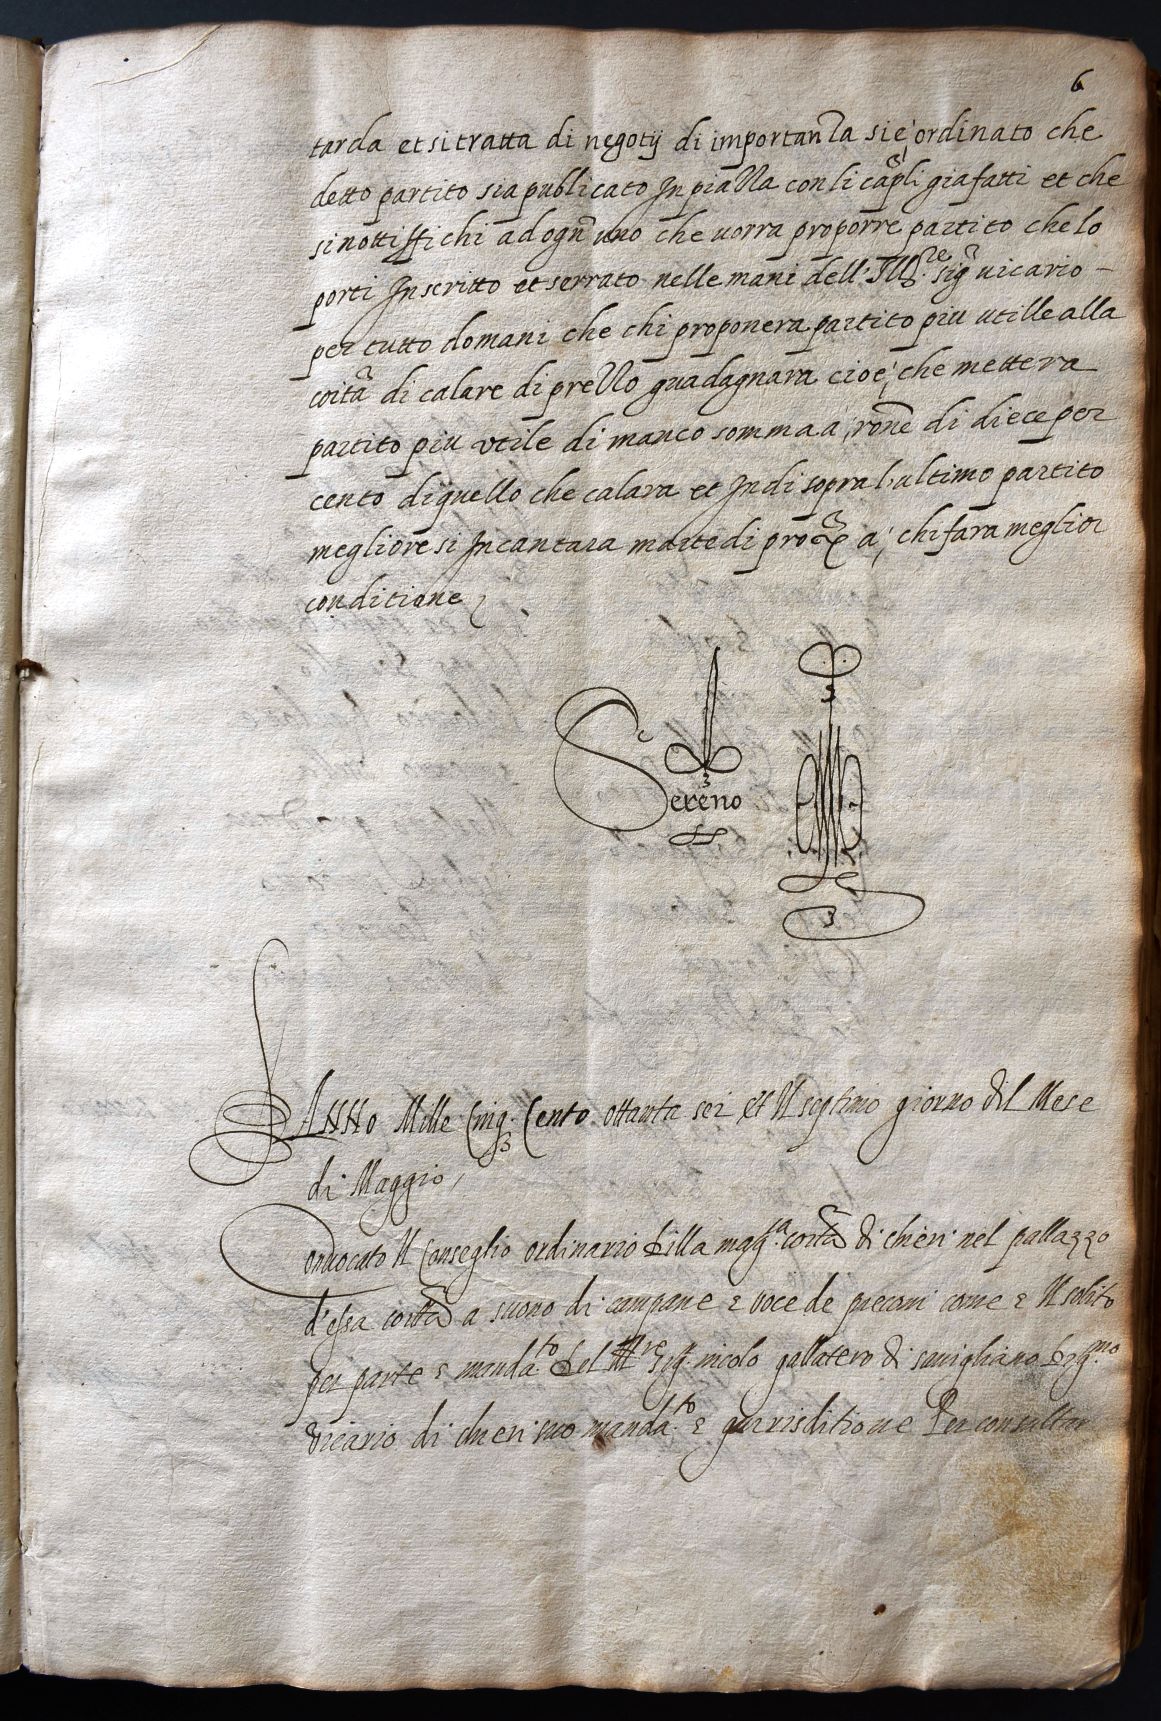 6
tarda et si tratta di negotij di importanza si è ordinato che
detto partito sia publicato In piazza con li cap̃li gia fatti et che
si nottiffichi ad ogn' uno che uorra proporre partito che lo
porti In scritto et serrato nelle mani dell' Ill.re sig.r uicario –
per tutto domani che chi proponera partito piu utille alla
coītà di calare di prezzo guadagnara cioè, che mettera
partito piu vtile di manco somma à, rōne di diece per
cento di quello che calara et Indi sopra l'ultimo partito
megliore si Incantara martedi prox̃ à, chi fara meglior
conditione
Sereno
L'Anno Mille Cinq. Cento ottanta sei et Il septimo giorno dil Mese
di Maggio,
Convocato Il Conseglio ordinario della mag.ca coītà di chieri nel pallazzo
d'essa coītà a suono di campane e voce de preconi come e Il solito
per parte e manda.to del Ill.re sig. nicolo gallatero di savigliano
vicario di chieri suo manda.to e giurisditione Per consultar